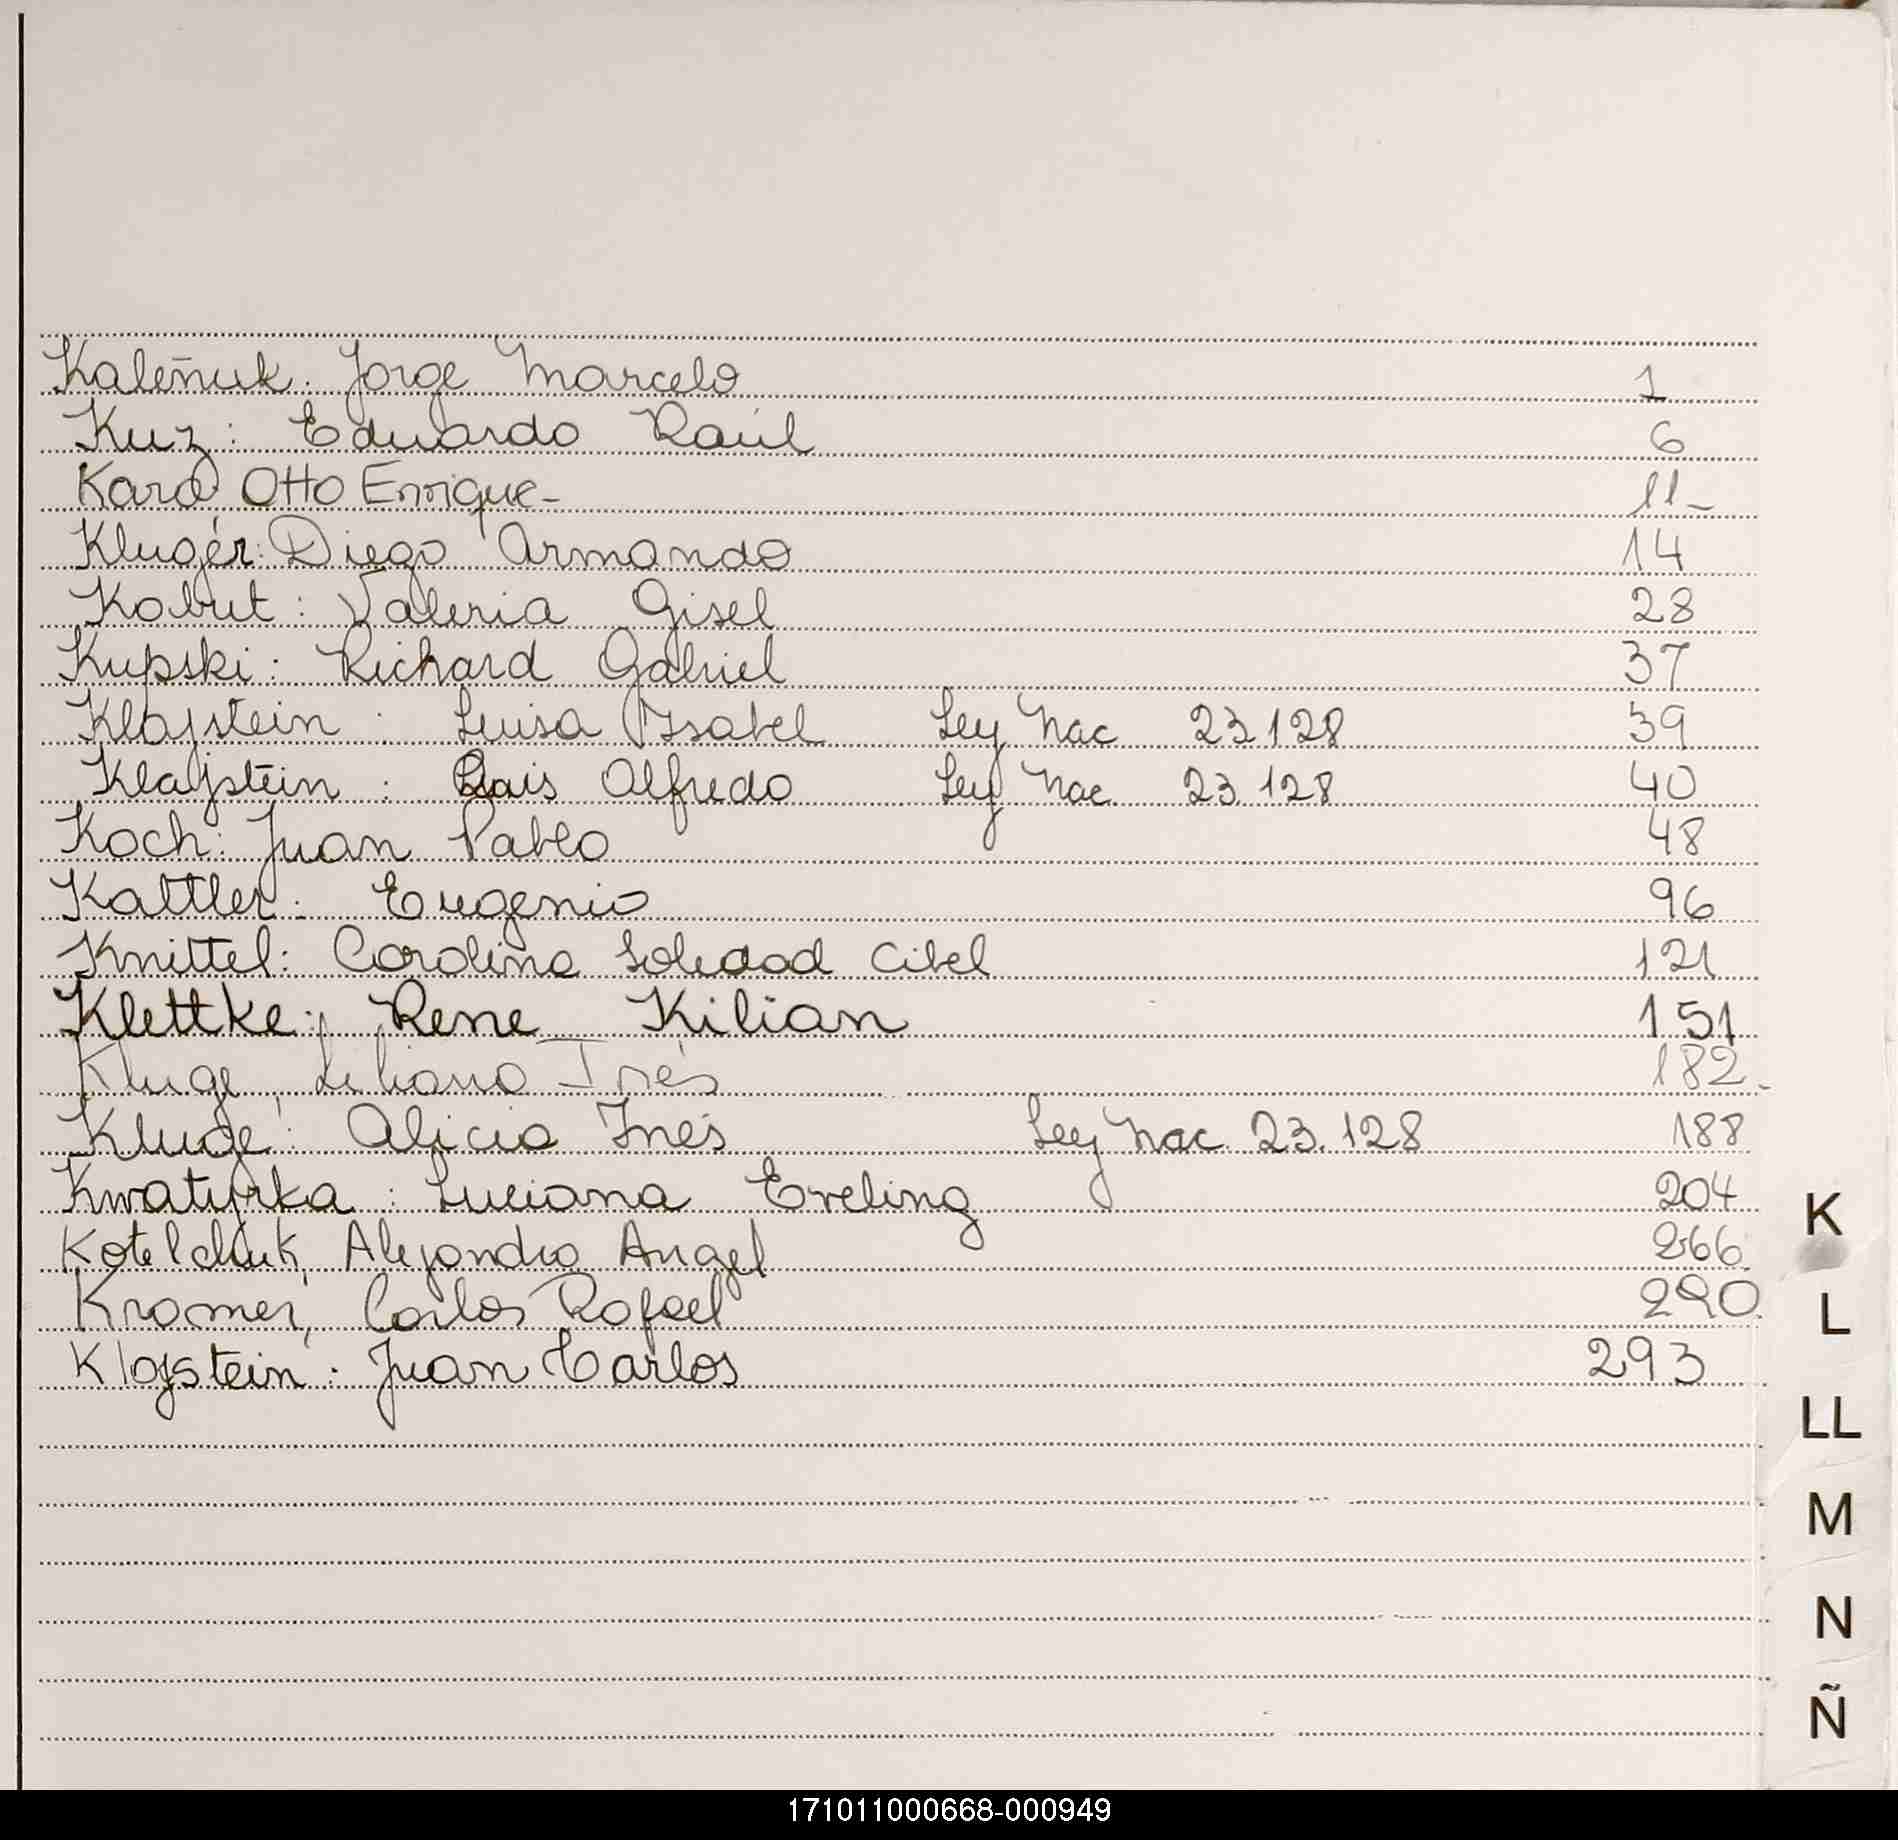 Kaleñuk: Jorge Marcelo 1
Kuz: Eduardo Raúl 6
Karo Otto Enrique- 11-
Kluger: Diego Armando 14
Kobut: Valeria Gisel 28
Kupski: Richard Gabriel 37
Klajstein: Luisa Isabel Ley Nac 23.128 39
Klajstein: Luis Alfredo Ley Nac. 23.128 40
Koch: Juan Pablo 48
Kattler: Eugenio 96
Knittel: Carolina Soledad Cibel 121
Klettke: Rene Kilian 151
Kluge, Liliana Inés 182-
Kluge: Alicia Inés Ley Nac. 23.128 188
Kwatyrka: Luciana Eveling 204
Kotelchuk, Alejandro Angel 266
Kramer, Carlos Rafael 290
Klajstein: Juan Carlos 293
K
L
LL
M
N
Ñ
171011000668-000949